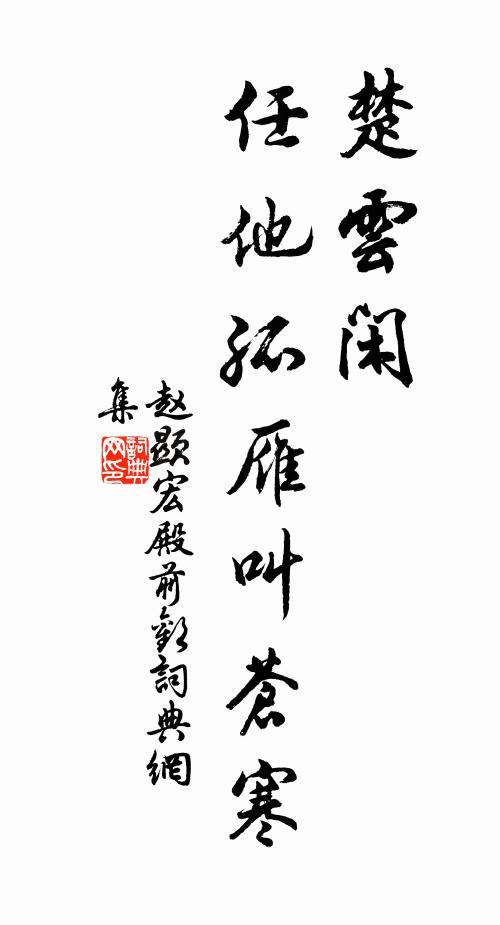 楚雲閑
任他孤雁叫蒼寒
赵顯宏殿前歡詞典網
集
詞典
网印